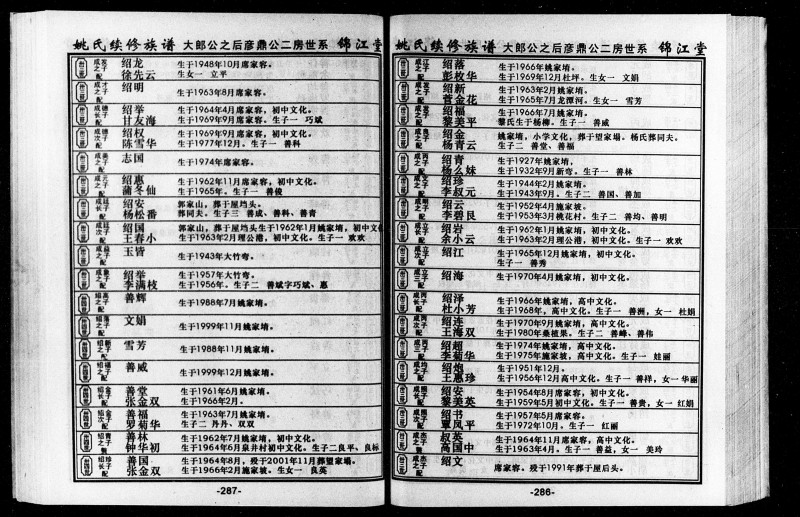 姚氏续修族谱 大郎公之后彦鼎公二房世系 锦江堂
绍龙 生于1948年10月席家容。
配 徐先云 生女一 立平
绍明 生于1963年8月席家容。
配
绍举 生于1964年4月席家容，初中文化。
配 甘友海 生于1969年9月席家容。生子一 巧斌
绍权 生于1969年9月席家容，初中文化。
配 陈雪华 生于1977年12月。生子一 善科
志国 生于1974年席家容。
配
绍惠 生于1962年11月席家容，初中文化。
配 蒲冬仙 生于1965年。生子一 善俊
绍安 郭家山，葬于屋垱头。
配 杨松番 葬同夫。生子三 善成、善科、善青
绍国 郭家山，葬于屋垱头生于1962年1月姚家堉，初中文
配 王春小 生于1963年2月理公港，初中文化。生子一 欢欢
玉皆 生于1943年大竹弯。
配
绍举 生于1957年大竹弯。
配 李满枝 生于1956年。生子二 善斌字巧斌、惠
善辉 生于1988年7月姚家堉。
配
文娟 生于1999年11月姚家堉。
配
雪芳 生于1988年11月姚家堉。
配
善威 生于1999年12月姚家堉。
配
善堂 生于1961年6月姚家堉。
配 张金双 生于1966年2月。
善福 生于1963年7月姚家堉。
配 罗菊华 生子二 丹丹、双双
善林 生于1962年7月姚家堉，初中文化。
钟华初 生于1964年6月泉井村初中文化。生子二良平、良标
善国 生于1964年8月，殁于2001年11月葬望家塌。
配 张金双 生于1966年2月施家坡。生女一 良英
-287-
姚氏续修族谱 大郎公之后彦鼎公二房世系 锦江堂
绍落 生于1966年姚家堉。
配 彭枚华 生于1969年12月杜坪。生女一 文娟
绍新 生于1963年2月姚家堉。
配 菅金花 生于1965年7月龙潭河。生女一 雪芳
绍福 生于1966年7月姚家堉。
配 黎美平 黎氏生于杨柳。生子一 善威
绍金 姚家堉，小学文化，葬于望家塌。杨氏葬同夫。
配 杨青云 生子二 善堂、善福
绍青 生于1927年姚家堉，
配 杨么妹 生于1932年9月新弯。生子一 善林
绍珍 生于1944年2月姚家堉。
配 李叔元 生于1943年9月。生子二 善国、善加
绍云 生于1952年4月施家坡。
配 李碧艮 生于1953年3月桃花村。生子二 善均、善明
绍岩 生于1962年1月姚家堉，初中文化。
配 余小云 生于1963年2月理公港，初中文化。生子一 欢欢
绍江 生于1965年12月姚家堉，初中文化。
配 生子一 善秀
绍海 生于1970年4月姚家堉，初中文化。
配
绍泽 生于1966年姚家堉，高中文化。
配 杜小芳 生于1968年，高中文化。生子一 善洲，女一 杜娟
绍连 生于1970年9月姚家堉，高中文化。
配 王海双 生于1980年桑植果。生子二 善峰、善伟
绍超 生于1974年姚家堉，高中文化。
配 李菊华 生于1975年施家坡，高中文化。生子一 娃丽
绍炮 生于1951年12月。
配 王惠珍 生于1956年12月高中文化。生子一 善祥，女一华丽
绍安 生于1954年8月席家容，初中文化。
配 黎美英 生于1959年5月初中文化。生子一 善贵，女一 红娟
绍书 生于1957年5月席家容。
配 覃凤平 生于1972年10月。生子一 红丽
叔英 生于1964年11月席家容，高中文化。
高国中 生于1963年4月。生子一 善益，女一 美玲
绍文 席家容。殁于1991年葬于屋后头。
配
-286-